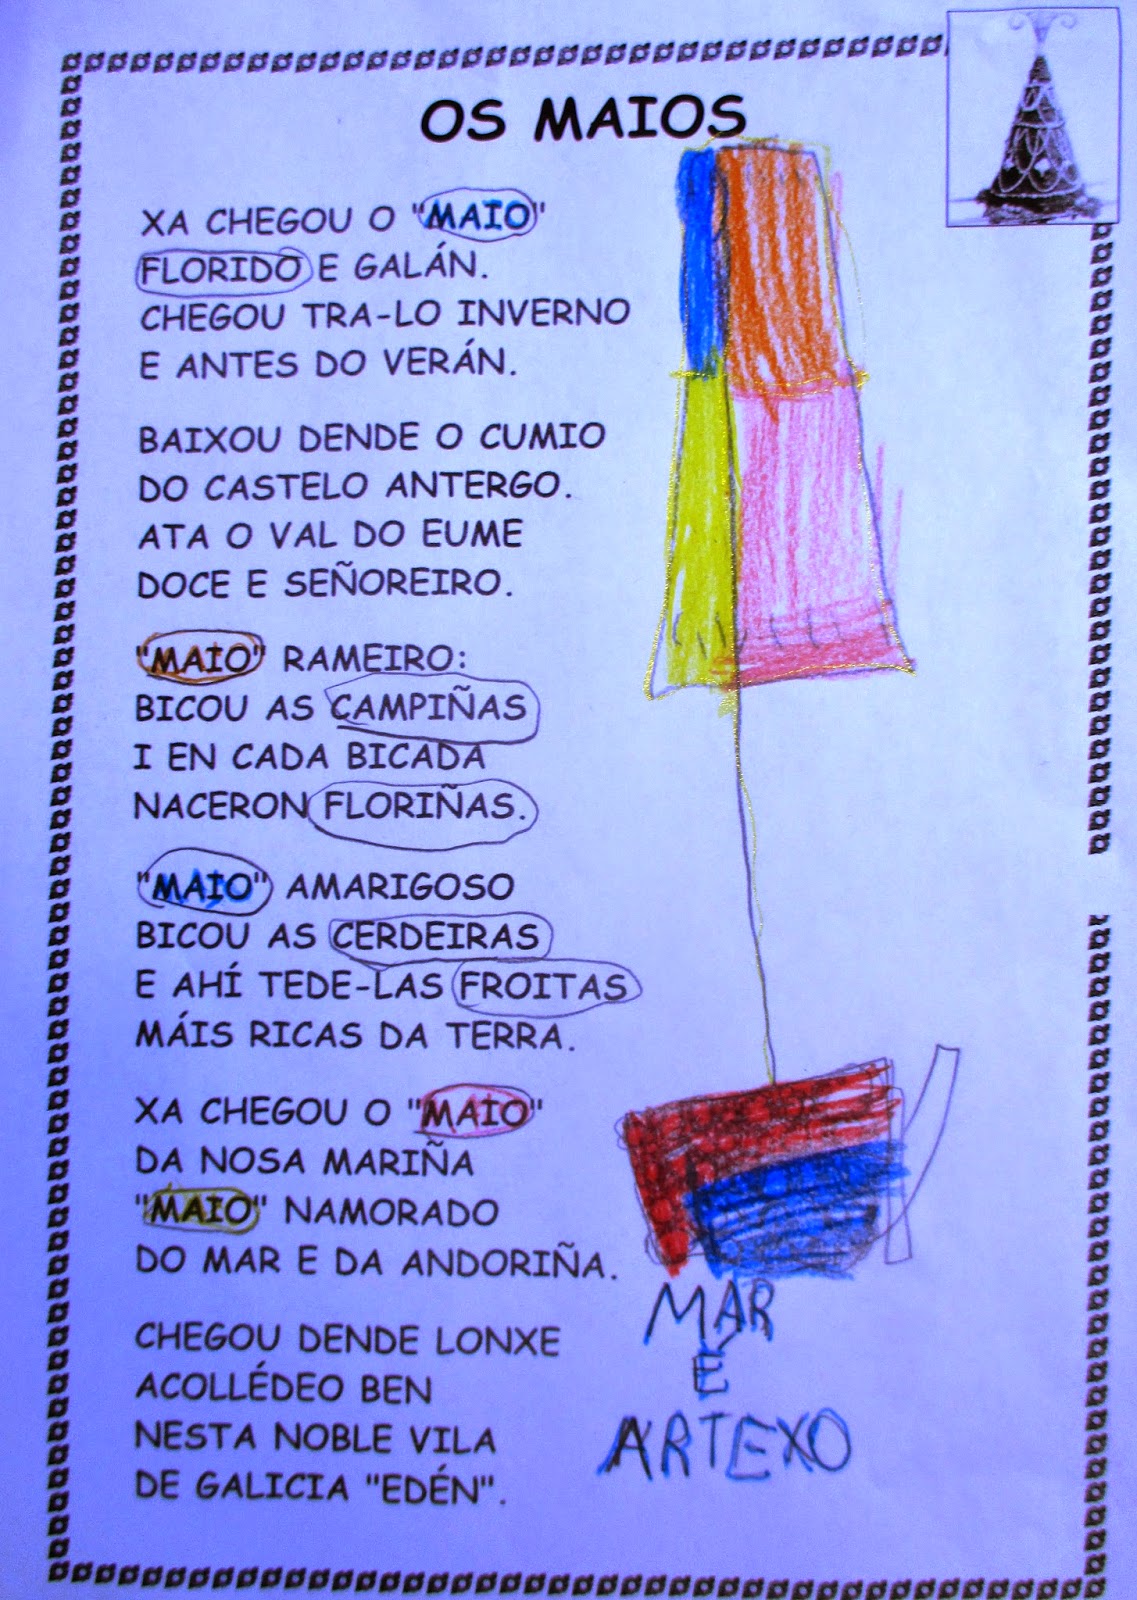 OS MAIOS
XA CHEGOU O "MAIO"
FLORIDO E GALÁN.
CHEGOU TRA-LO INVERNO
E ANTES DO VERÁN.
BAIXOU DENDE O CUMIO
DO CASTELO ANTERGO.
ATA O VAL DO EUME
DOCE E SEÑOREIRO.
"MAIO" RAMEIRO:
BICOU AS CAMPIÑAS
I EN CADA BICADA
NACERON FLORIÑAS.
"MAIO" AMARIGOSO
BICOU AS CERDEIRAS
E AHÍ TEDE-LAS FROITAS
MÁIS RICAS DA TERRA.
XA CHEGOU O "MAIO"
DA NOSA MARIÑA
"MAIO" NAMORADO
DO MAR E DA ANDORIÑA.
CHEGOU DENDE LONXE
ACOLLÉDEO BEN
NESTA NOBLE VILA
DE GALICIA "EDÉN".
MAR
E
ARTEXO